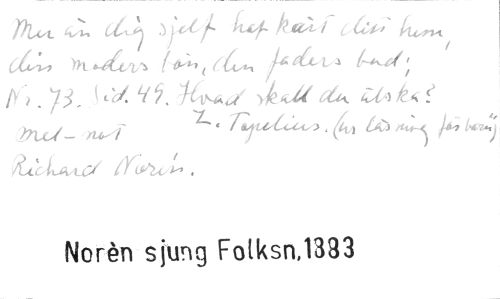 Mer än dig sjelf haf kärt ditt hem,
din moders bön, din faders bud;
Nr. 73. Sid. 49. Hvad skall du älska?
mel-not Z. Topelius. (ur läsning för barn")
Richard Norén.
Norèn sjung Folksn,1883